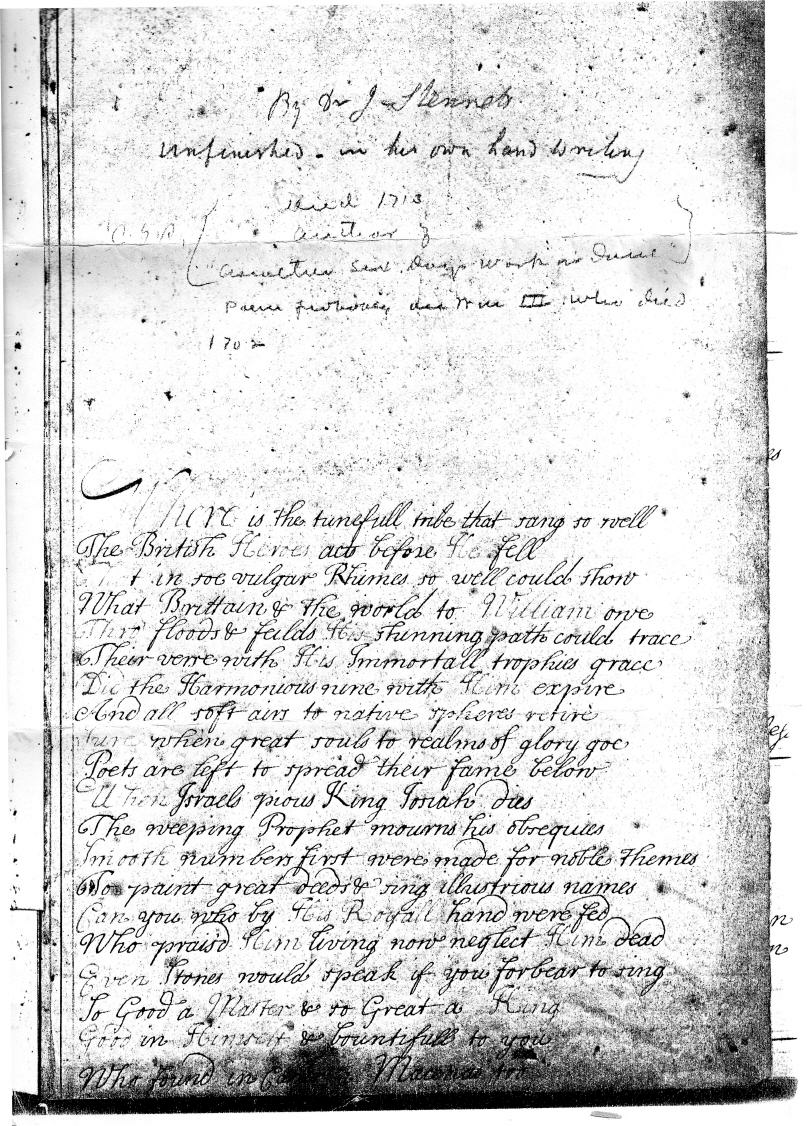 By Dr J Stennett
Unfinished - in his own hand writing
died 1713
author of
"another six days work is done"
on Wm III who died
1702
Where is the tunefull tribe that sang so well
The British Heroes acts before He fell
t in soe vulgar Rhimes so well could show
What Brittain & the world to William owe
Thro floods & feilds His stunning path could trace
Their verse with His Immortall trophies grace
Did the Harmonious nine with Him expire
And all soft airs to native spheres retire
Sure when great souls to realms of glory goe
Poets are left to spread their fame below
When Israels pious King Josiah dies
The weeping Prophet mourns his obsequies
Smooth numbers first were made for noble themes
To paint great deeds & sing illustrious names
Can you who by His Royall hand were fed
Who praisd Him living now neglect Him dead
Even Stones would speak if you forbear to sing
So Good a Master & so Great a King
Good in Himself & bountifull to you
Who found in Mæcenas too